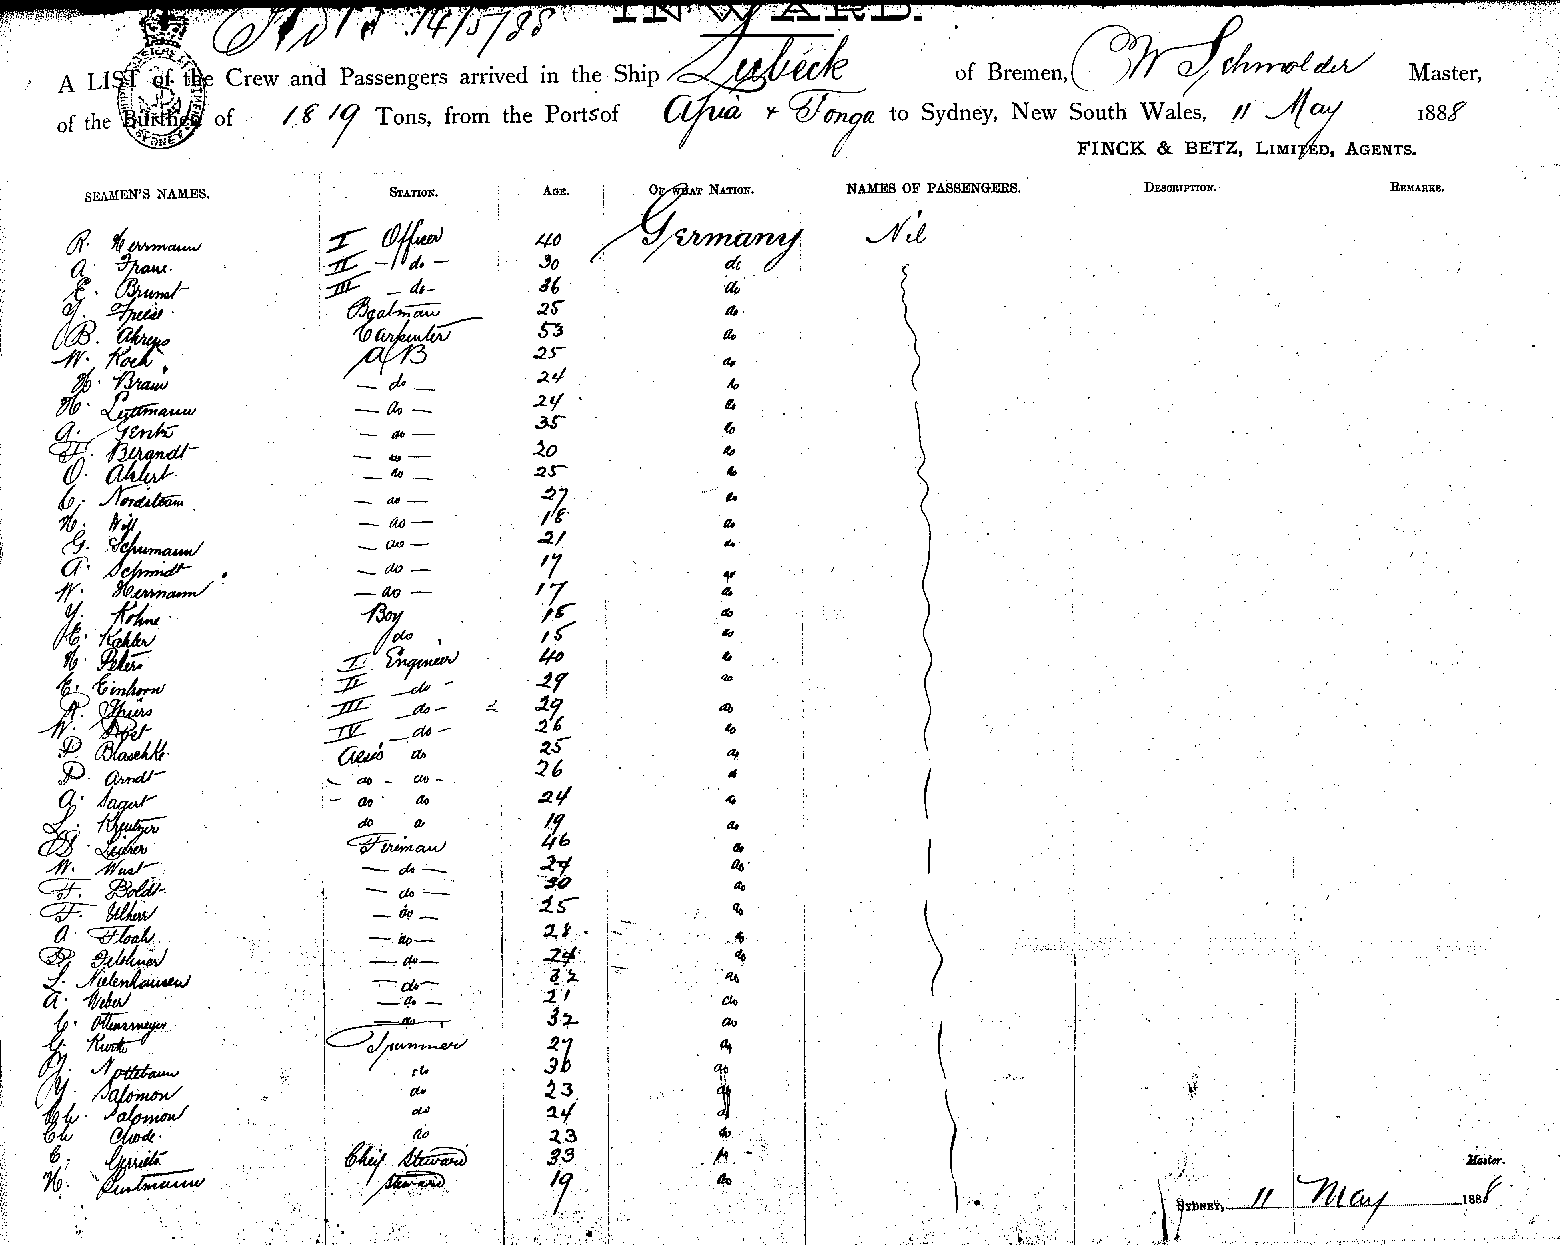 INWARD.
14/5/88
A LIST of the Crew and Passengers arrived in the Ship Lübeck of Bremen, W Schmolder Master,
of the Burthen of 1819 Tons, from the Ports of Apia + Tonga to Sydney, New South Wales, 11 May 1888
FINCK & BETZ, LIMITED, AGENTS.
SEAMEN'S NAMES. STATION. AGE. OF WHAT NATION. NAMES OF PASSENGERS. DESCRIPTION. REMARKS.
R. Herrmann I Officer 40 Germany Nil
A. Franc. II - do - 30 do
E. Brunst III - do - 36 do
J. Freese Boatman 25 do
B. Ahrens Carpenter 53 do
W. Koch AB 25 do
H. Braun - do - 24 do
H. Luttmann - do - 24 do
A. Gentz - do - 35 do
F. Berandt - do - 20 do
O. Ahlert - do - 25 do
C. Nordstram - do - 27 do
H. Will - do - 18 do
G. Schumann - do - 21 do
A. Schmidt - do - 17 do
W. Herrmann - do - 17 do
J. Kohne Boy 15 do
E. Kahler do 15 do
H. Peters I. Engineer 40 do
E. Einhorn II - do - 29 do
R. Spiers III - do - 29 do
W. Post IV - do - 26 do
P. Blaschke Assis do 25 do
P. Arndt - do - do - 26 do
A. Sagert - do do 24 do
L. Kreutzer do do 19 do
Fireman 46 do
W. Wust - do - 24 do
F. Boldt - do - 30 do
F. - do - 25 do
A. Floah - do - 28 do
- do - 24 do
L. Nielenhausen - do - 32 do
A. Weber - do - 21 do
C. Ottensmeyer - do - 32 do
G. Kurth Trimmer 27 do
Nottebaum do 30 do
J. Salomon do 23 do
Ch. Salomon do 24 do
Ch Chode do 23 do
E. Gerriets Cheif Steward 33 do
H. Luntmann Steward 19 do
Master.
SYDNEY, 11 May 1888